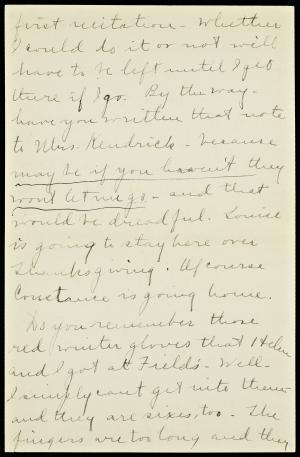 first recitation - Whether
I could do it or not will
have to be left until I get
there if I go. By the way -
have you written that note
to Mrs. Kendrick - because
may be if you haven't they
won't let me go - and that
would be dreadful. Louise
is going to stay here over
Thanksgiving. Of course
Constance is going home.
Do you remember those
red winter gloves that Helen
and I got at Field's - Well -
I simply can't get into them -
and they are sixes, too - The
fingers are too long and they